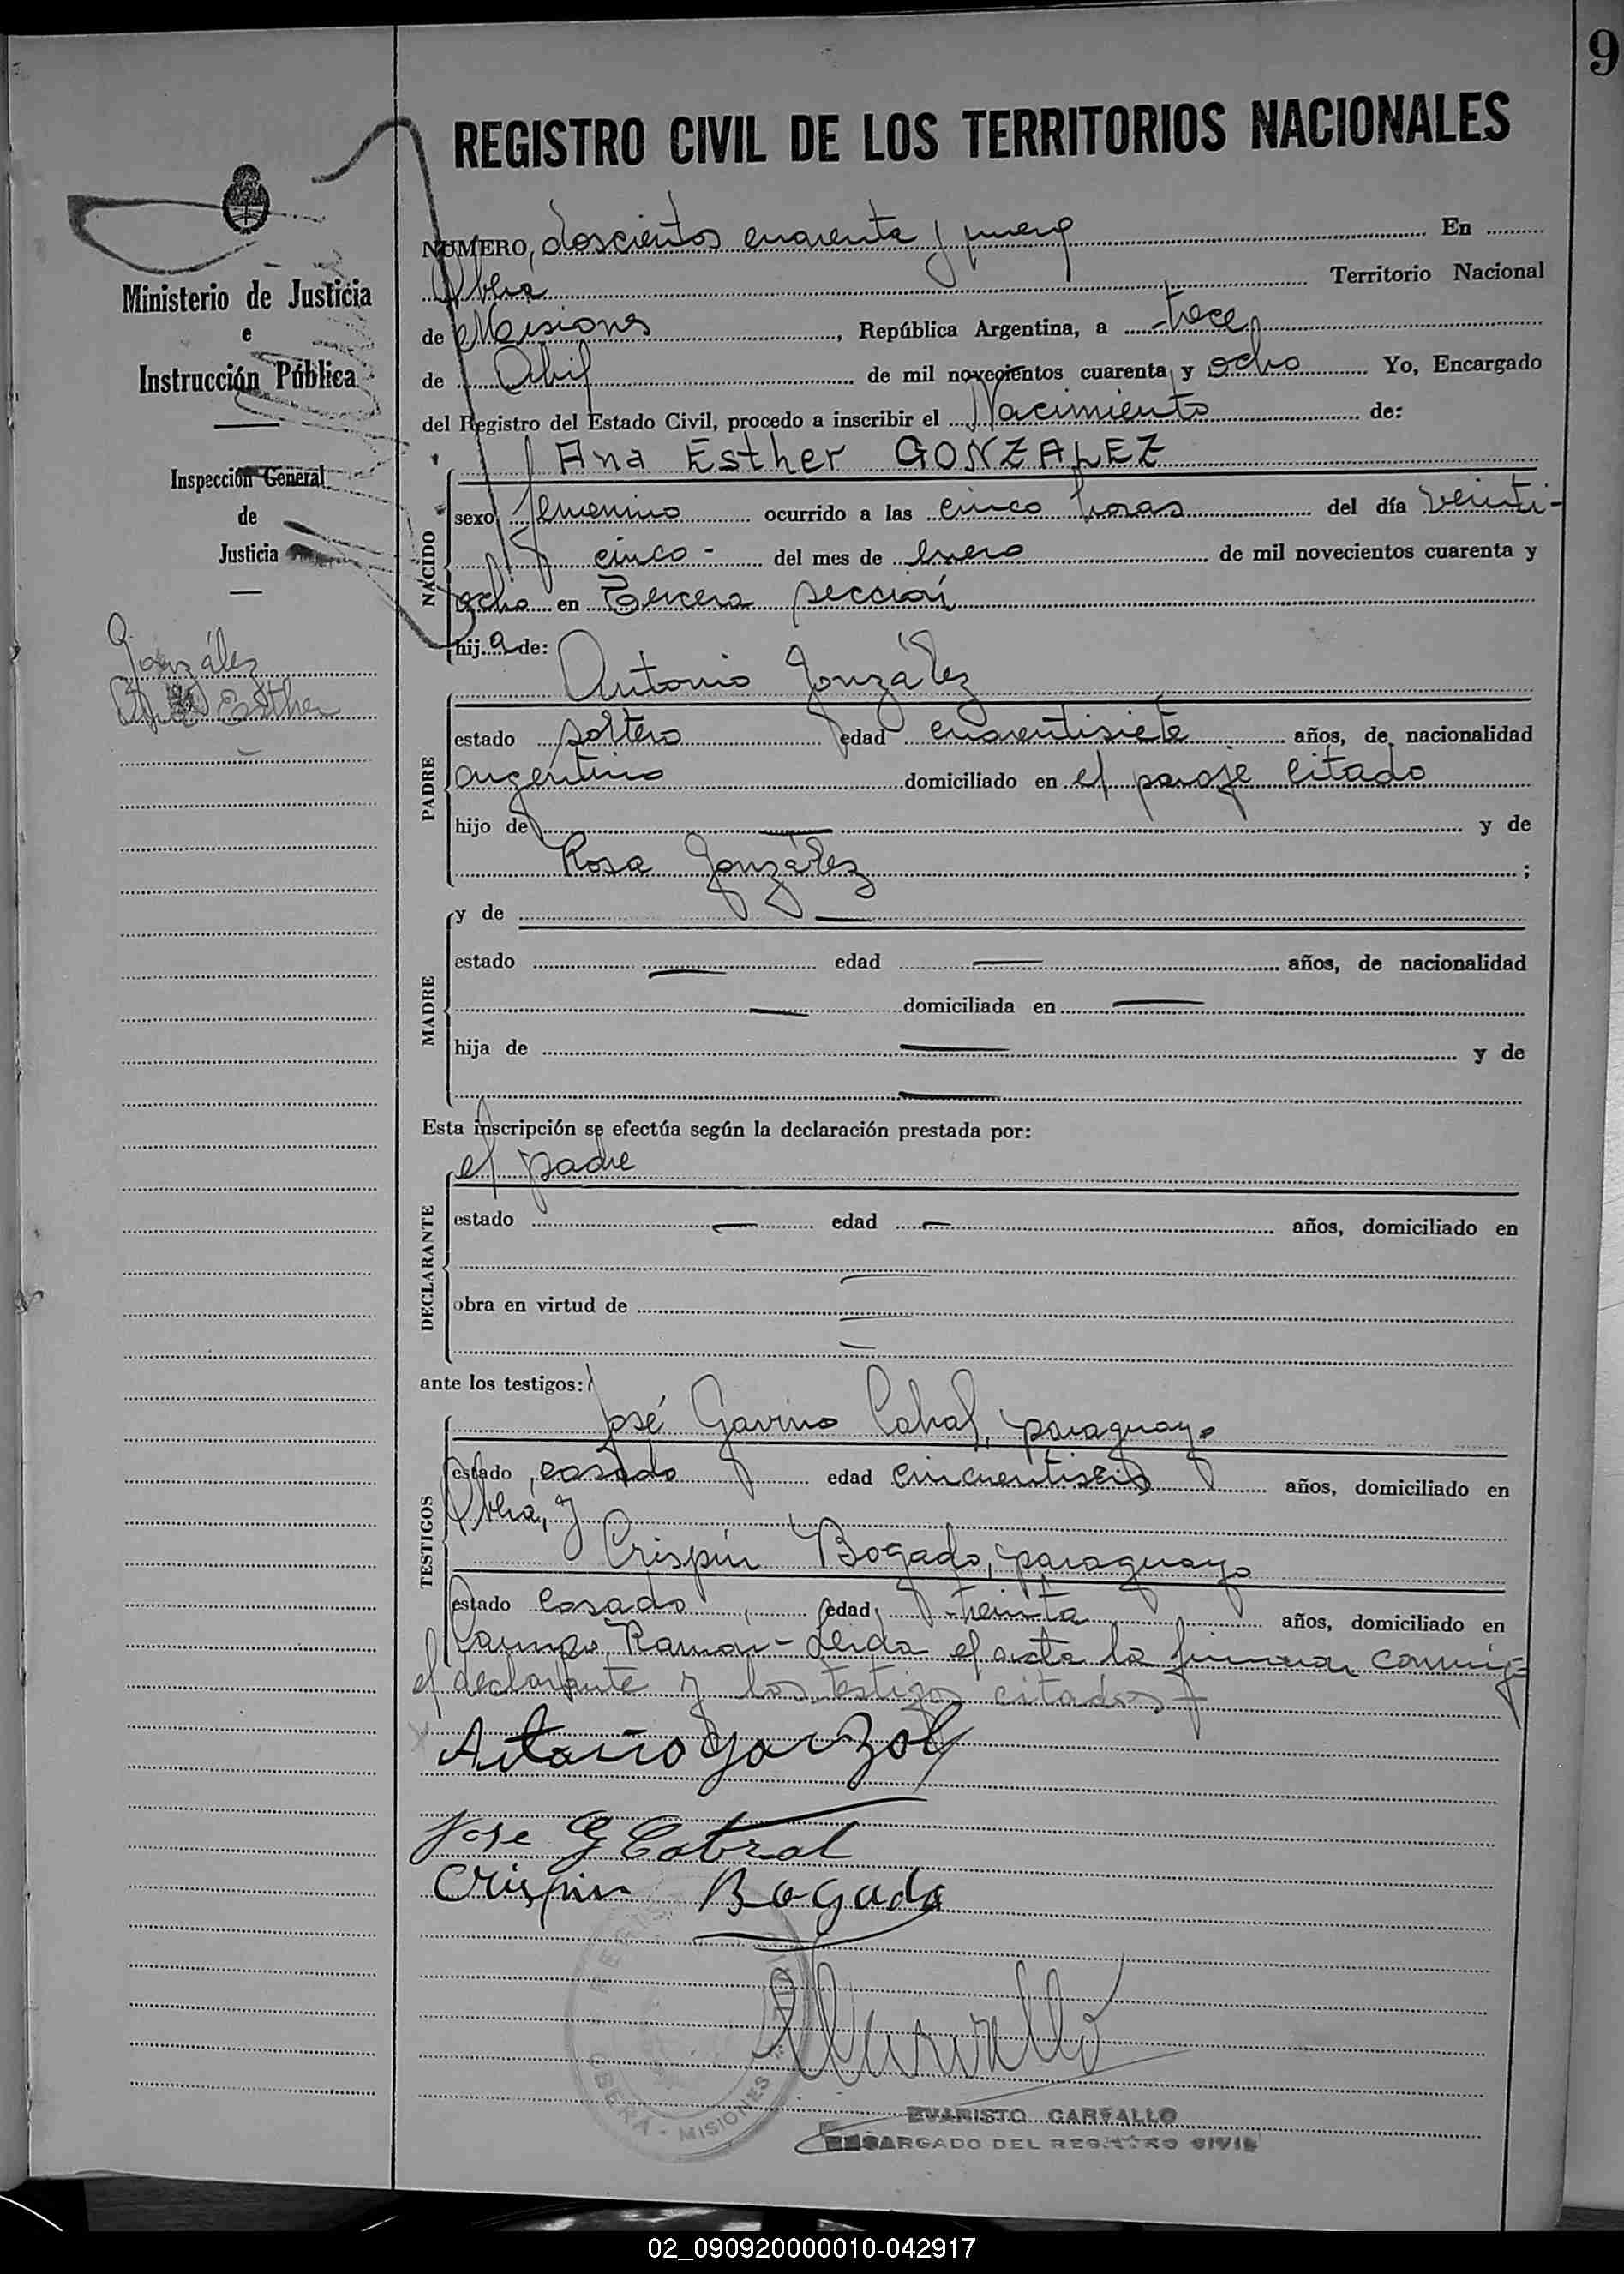 9
REGISTRO CIVIL DE LOS TERRITORIOS NACIONALES
Ministerio de Justicia
e
Instrucción Pública
Inspección General
de
Justicia
González
Ana Esther
NUMERO, doscientos cuarenta y nueve En
Oberá Territorio Nacional
de Misiones, República Argentina, a trece
de Abril de mil novecientos cuarenta y ocho Yo, Encargado
del Registro del Estado Civil, procedo a inscribir el Nacimiento de:
NACIDO
Ana Esther GONZALEZ
sexo femenino ocurrido a las cinco horas del día veinti-
cinco - del mes de Enero de mil novecientos cuarenta y
ocho en Tercera sección
hij a de:
PADRE
Antonio González
estado soltero edad cuarentisiete años, de nacionalidad
argentino domiciliado en el paraje citado
hijo de — y de
Rosa González ;
MADRE
y de —
estado — edad — años, de nacionalidad
— domiciliada en —
hija de — y de
—
Esta inscripción se efectúa según la declaración prestada por:
DECLARANTE
el padre
estado — edad — años, domiciliado en
—
obra en virtud de —
—
ante los testigos:
TESTIGOS
José Gavino Cabral, paraguayo
estado casado edad cincuentiseis años, domiciliado en
Oberá, y
Crispín Bogado, paraguayo
estado casado, edad treinta años, domiciliado en
Campo Ramón - Leida el acta la firman conmigo
el declarante y los testigos citados
Antonio Gonzalez
Jose G Cabral
Crispin Bogado
REGISTRO CIVIL
OBERA - MISIONES
EVARISTO CARVALLO
ENCARGADO DEL REGISTRO CIVIL
02_090920000010-042917